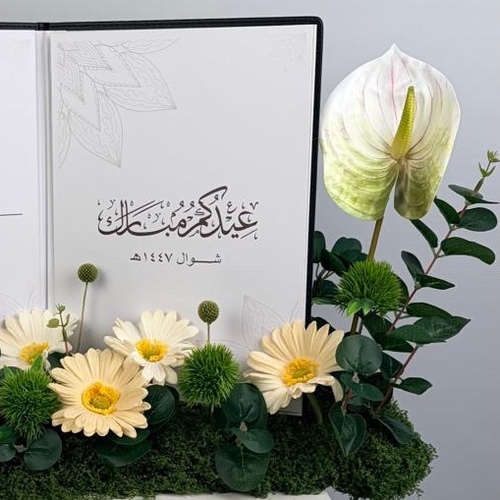 عيدكم مبارك
شوال ١٤٤٧هـ